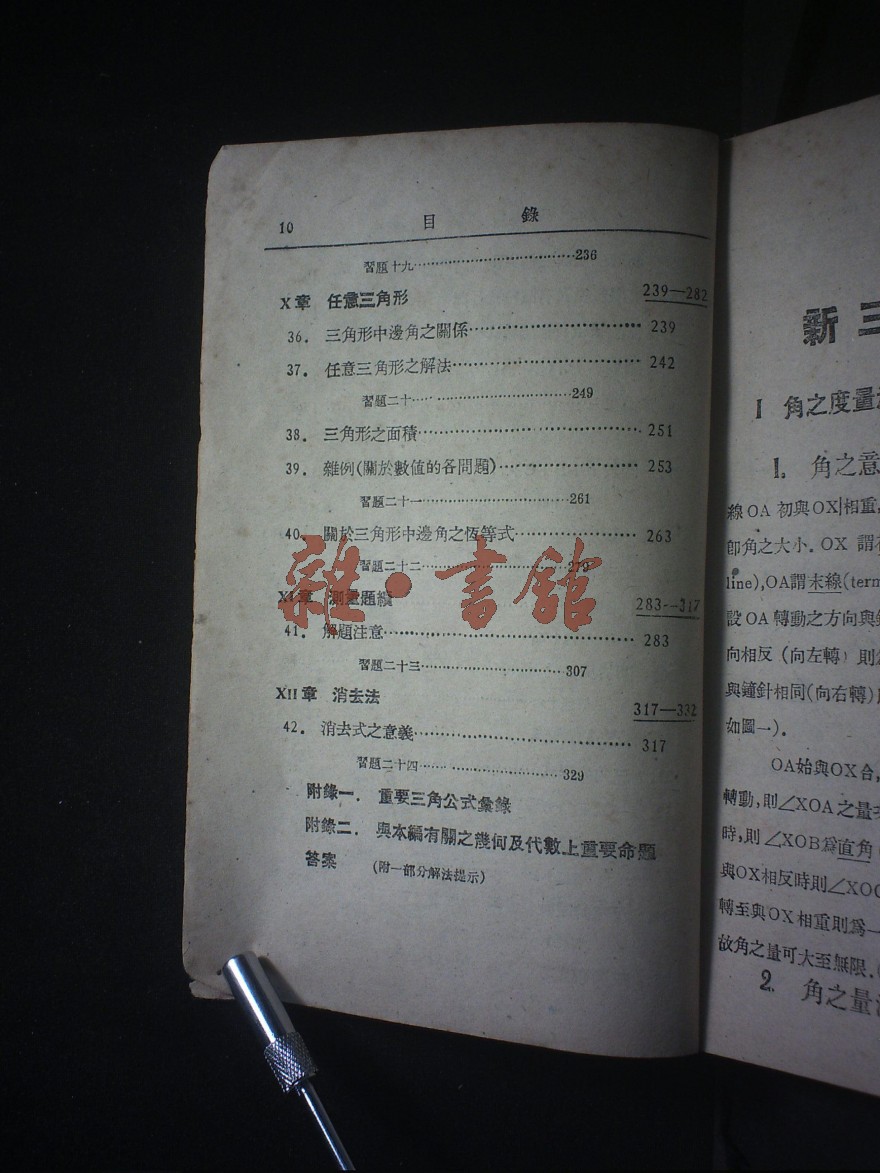 10 目 錄
習題十九 236
X章 任意三角形 239—282
36. 三角形中邊角之關係 239
37. 任意三角形之解法 242
習題二十 249
38. 三角形之面積 251
39. 雜例(關於數值的各問題) 253
習題二十一 261
40. 關於三角形中邊角之恆等式 263
習題二十二 279
雜·書館
XI章 測量題 283--317
41. 解題注意 283
習題二十三 307
XII章 消去法 317—332
42. 消去式之意義 317
習題二十四 329
附錄一. 重要三角公式彙錄
附錄二. 與本編有關之幾何及代數上重要命題
答案 (附一部分解法提示)
新三
I 角之度量
1. 角之意
線OA初與OX相重,
卽角之大小. OX 謂
line),OA謂末線(term
設OA轉動之方向與
向相反(向左轉)則
與鐘針相同(向右轉)
如圖一).
OA始與OX合,
轉動,則∠XOA之量
時,則∠XOB爲直角
與OX相反時則∠XOC
轉至與OX相重則爲一
故角之量可大至無限.
2. 角之量